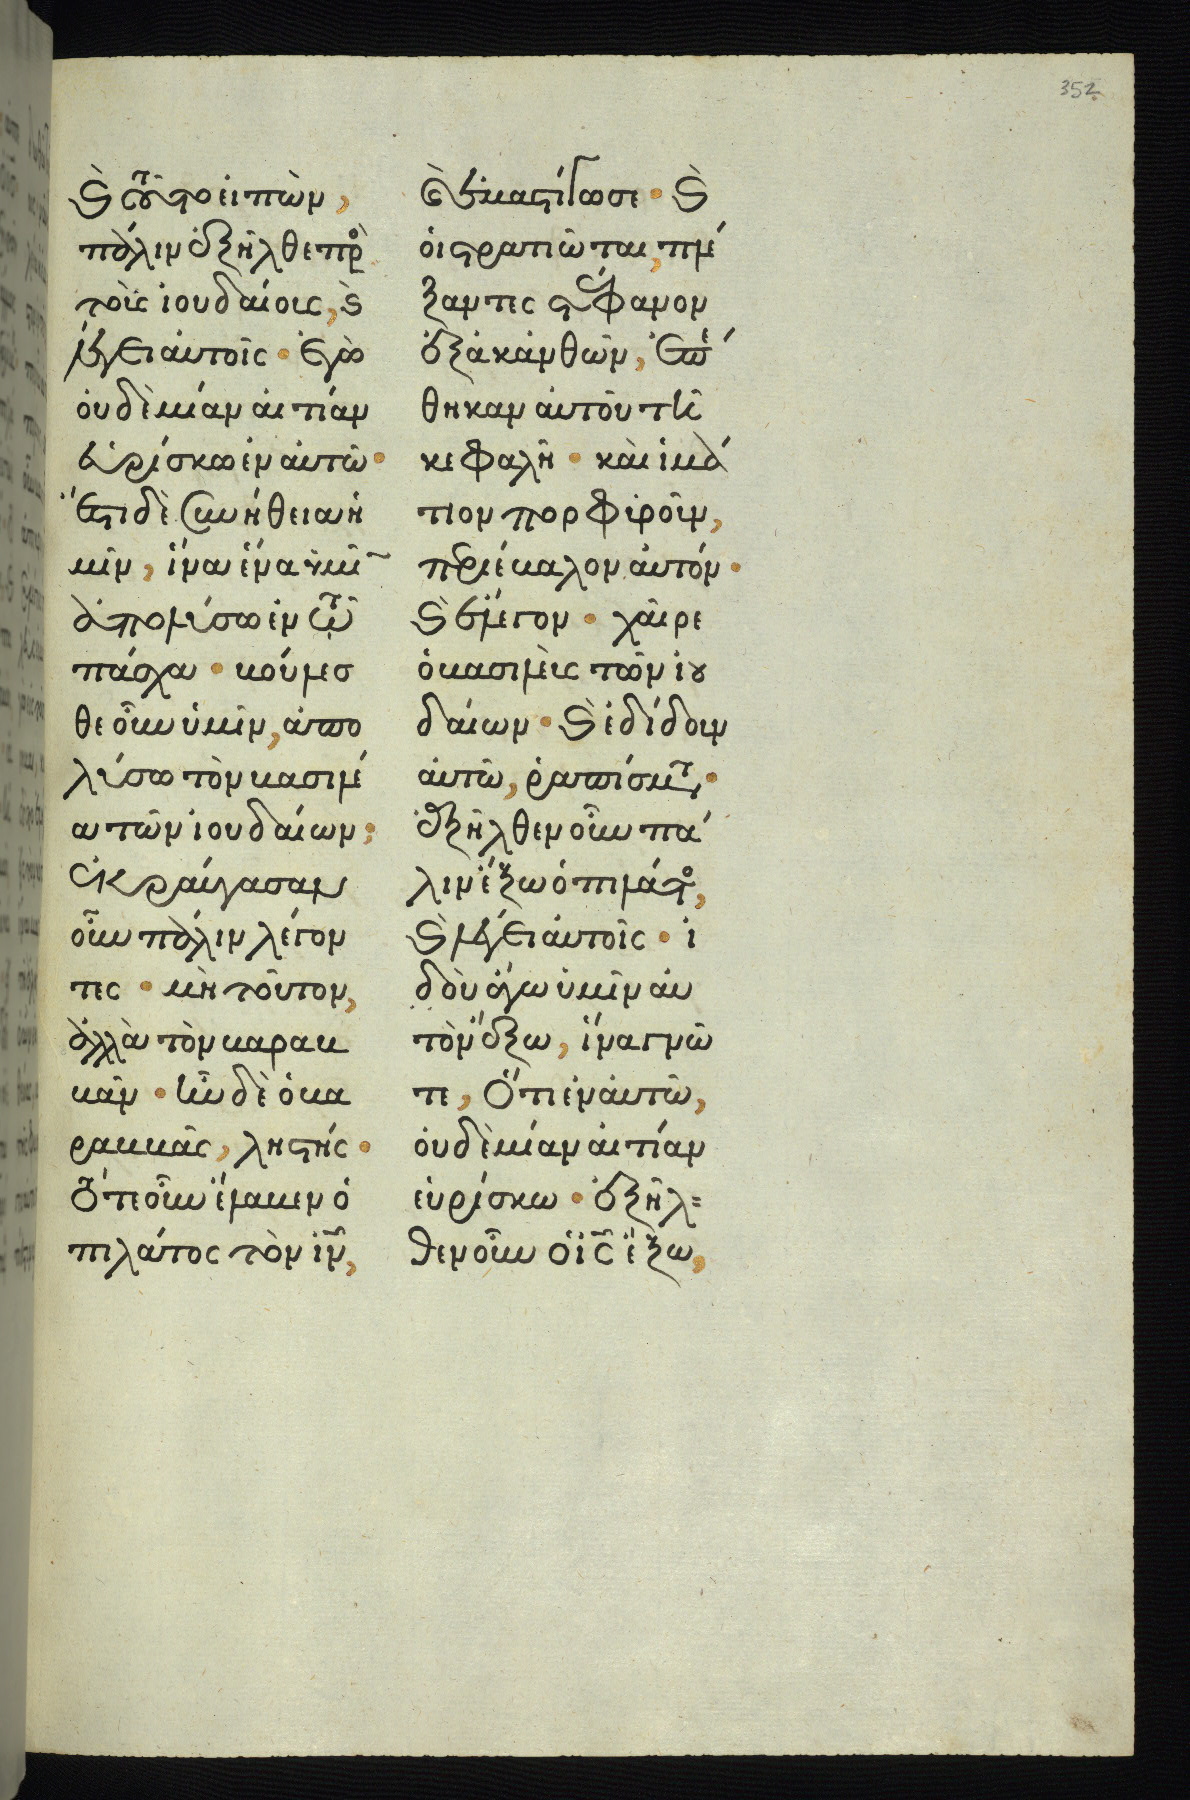 352
ϗ τοῦτο εἰπὼν,
πάλιν ἐξῆλθε πρὸ
τοῖς ἰουδαίοις, ϗ
λέγει αὐτοῖς · ἐγὼ
οὐδὲμίαν αἰτίαν
εὑρίσκω ἐν αὐτῶ ·
ἔστι δὲ συνήθεια ἡ
μῖν, ἵνα ἕνα ὑμῖ
ἀπολύσω ἐν τῶ
πάσχα · βούλεσ
θε οὖν ὑμῖν, ἀπο
λύσω τὸν βασιλέ
α τῶν ἰουδαίων;
ἐκραύγασαν
οὖν πάλιν λέγον
τες · μὴ τοῦτον,
ἀλλὰ τὸν βαραβ
βᾶν · ἦν δὲ ὁ βα
ραββᾶς, ληστής ·
ὅτε οὖν ἔλαβεν ὁ
πιλάτος τὸν ιν̅,
ἐμαστίγωσε · ϗ
οἱ στρατιῶται, πλέ
ξαντες στέφανον
ἐξ ἀκανθῶν, ἐπέ
θηκαν αὐτοῦ τῆ
κεφαλῆ · καὶ ἱμά
τιον πορφιροῦν,
περιέβαλον αὐτόν ·
ϗ ἔλεγον · χαῖρε
ὁ βασιλεὺς τῶν ἰου
δαίων · ϗ ἐδίδουν
αὐτῶ, ῥαπίσματ ·
ἐξῆλθεν οὖν πά
λιν ἔξω ὁ πιλάτο,
ϗ λέγει αὐτοῖς · ἰ
δοὺ ἄγω ὑμῖν αὐ
τὸν ἔξω, ἵνα γνῶ
τε, ὅτι ἐν αὐτῶ,
οὐδὲμίαν αἰτίαν
εὑρίσκω · ἐξῆλ
θεν οὖν ὁ ις̅ ἔξω,